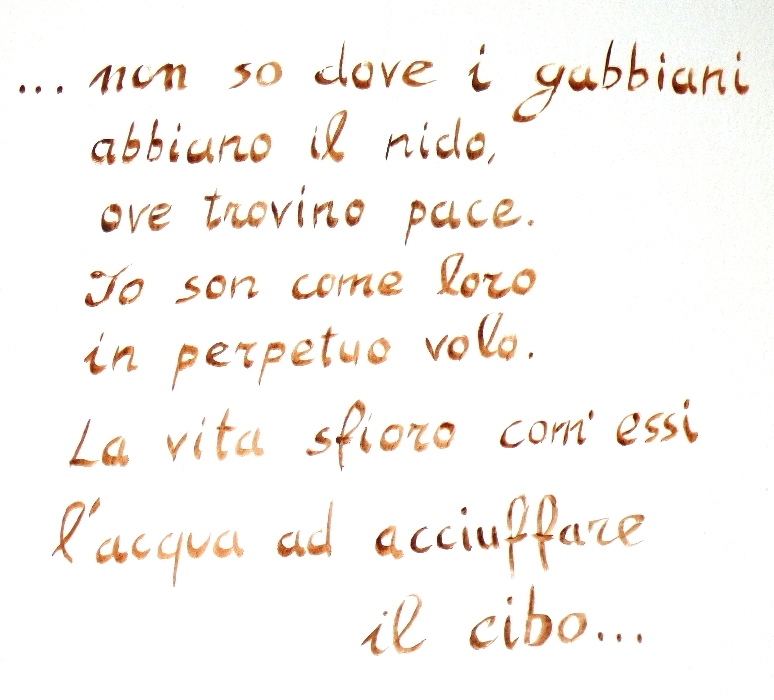 ... non so dove i gabbiani
abbiano il nido,
ove trovino pace.
Io son come loro
in perpetuo volo.
La vita sfioro com' essi
l'acqua ad acciuffare
il cibo...